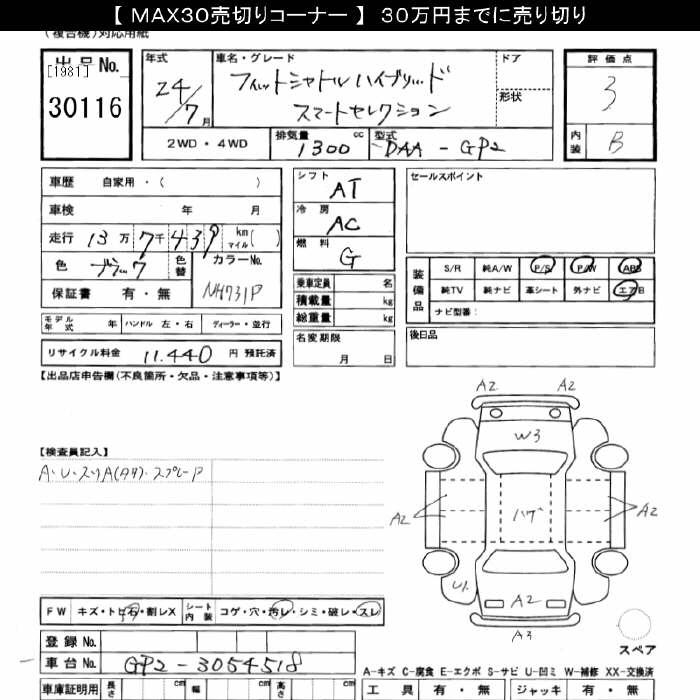 【 MAX30売切りコーナー 】 30万円までに売り切り
(複合機)対応用紙
出品 No.
[1981]
30116
年式
24/7月
車名・グレード
フィットシャトルハイブリッド
スマートセレクション
ドア
形状
評価点
3
内装
B
2WD・4WD
排気量
1300 cc
型式
DAA-GP2
車歴 自家用・( )
車検 年 月
走行 13万7千439 km マイル( )
色 ブラック
色替
カラーNo.
NH731P
保証書 有・無
シフト
AT
冷房
AC
燃料
G
乗車定員 名
積載量 kg
総重量 kg
セールスポイント
装備品
S/R 純A/W P/S P/W ABS
純TV 純ナビ 革シート 外ナビ エアB
ナビ型番:
モデル年式 年 ハンドル 左・右 ディーラー・並行
リサイクル料金 11,440 円 預託済
名変期限
月 日
後日品
【出品店申告欄(不良箇所・欠品・注意事項等)】
【検査員記入】
A・U・スリA(タタ)・スプレーP
A2 A2
W3
A2 ハゲ A2
U1
A2
A3
スペア
FW キズ・トビ石・割レX
シート内装 コゲ・穴・汚レ・シミ・破レ・スレ
登録 No.
車台 No. GP2-3054518
A-キズ C-腐食 E-エクボ S-サビ U-凹ミ W-補修 XX-交換済
車庫証明用 長さ cm 幅 cm 高さ cm
工具 有・無 ジャッキ 有・無